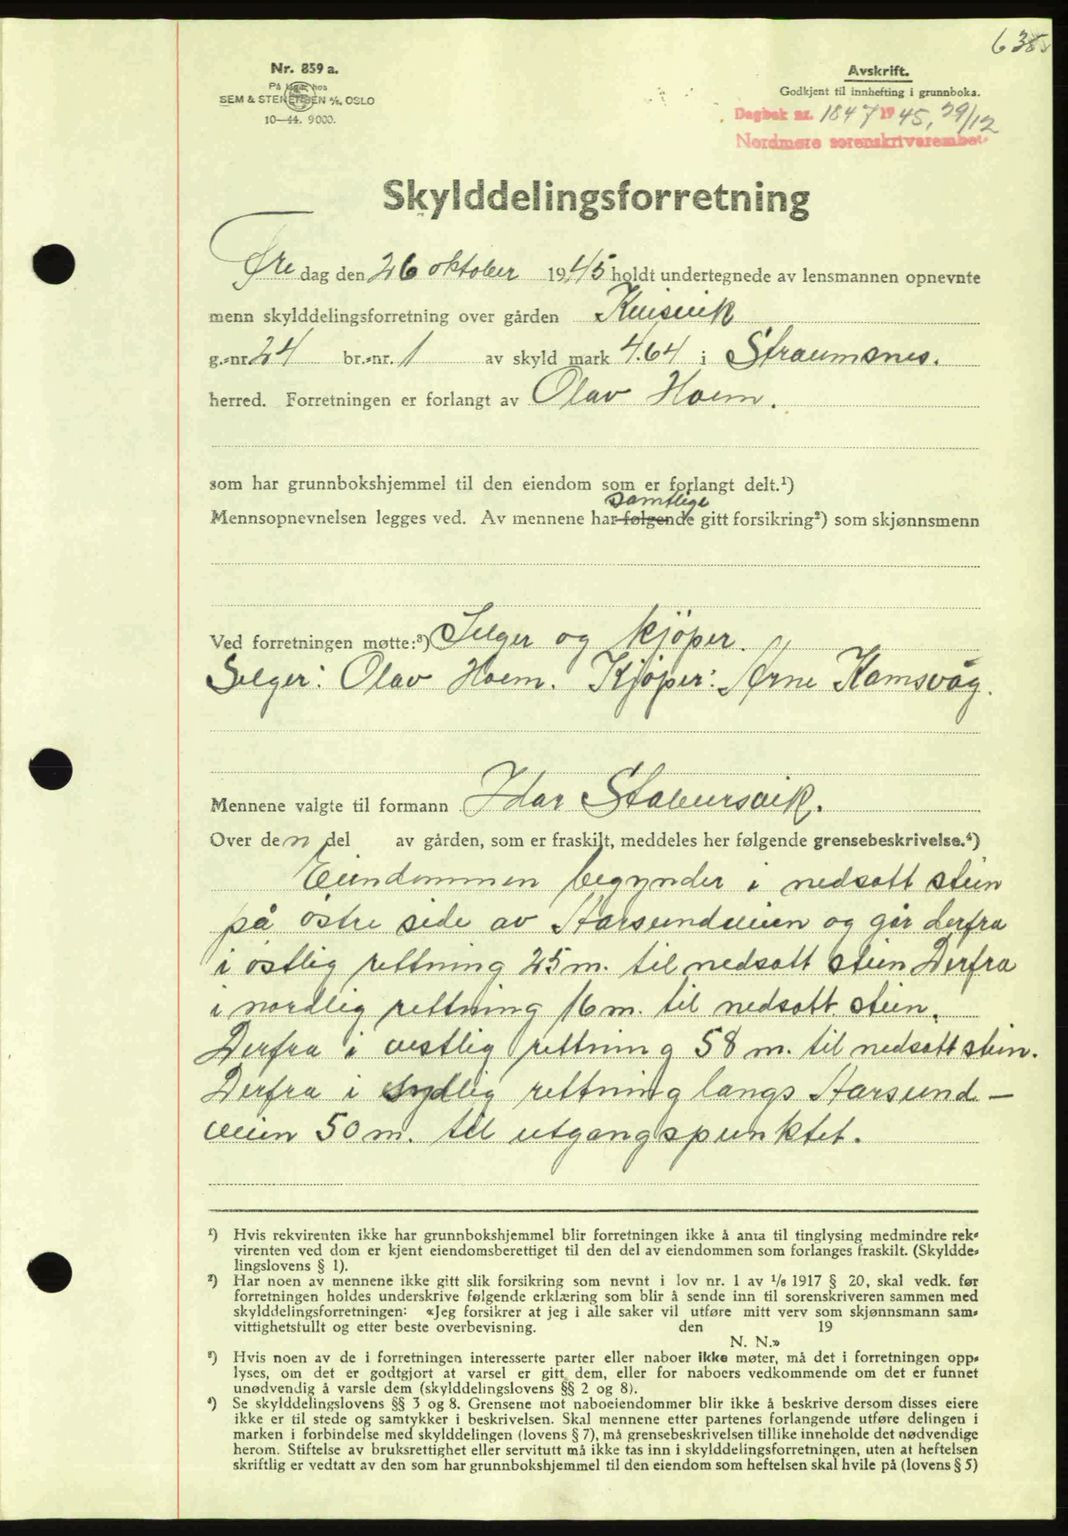 638
Nr. 859 a.
På lager hos
SEM & STENERSEN A/S, OSLO
10—44. 9000.
Avskrift.
Godkjent til innhefting i grunnboka.
Dagbok nr. 1847 1945, 29/12
Nordmøre sorenskriverembete
Skylddelingsforretning
Fredag den 26 oktober 1945 holdt undertegnede av lensmannen opnevnte
menn skylddelingsforretning over gården Kvisvik
g.-nr. 24 br.-nr. 1 av skyld mark 4.64 i Straumsnes.
herred. Forretningen er forlangt av Olav Hoem.
som har grunnbokshjemmel til den eiendom som er forlangt delt.¹)
samtlige
Mennsopnevnelsen legges ved. Av mennene har følgende gitt forsikring²) som skjønnsmenn
Ved forretningen møtte:³) Selger og kjøper.
Selger: Olav Hoem. Kjøper: Arne Kamsvåg.
Mennene valgte til formann Idar Stabursvik.
Over den del av gården, som er fraskilt, meddeles her følgende grensebeskrivelse.⁴)
Eiendommen begynder i nedsatt stein
på østre side av Aarsundveien og går derfra
i østlig rettning 25 m. til nedsatt stein Derfra
i nordlig rettning 16 m. til nedsatt stein.
Derfra i vestlig rettning 58 m. til nedsatt stein.
Derfra i sydlig rettning langs Aarsund-
veien 50 m. til utgangspunktet.
¹) Hvis rekvirenten ikke har grunnbokshjemmel blir forretningen ikke å anta til tinglysing medmindre rek-
virenten ved dom er kjent eiendomsberettiget til den del av eiendommen som forlanges fraskilt. (Skyldde-
lingslovens § 1).
²) Har noen av mennene ikke gitt slik forsikring som nevnt i lov nr. 1 av 1/6 1917 § 20, skal vedk. før
forretningen holdes underskrive følgende erklæring som blir å sende inn til sorenskriveren sammen med
skylddelingsforretningen: «Jeg forsikrer at jeg i alle saker vil utføre mitt verv som skjønnsmann sam-
vittighetsfullt og etter beste overbevisning. den 19
N. N.»
³) Hvis noen av de i forretningen interesserte parter eller naboer ikke møter, må det i forretningen opp-
lyses, om det er godtgjort at varsel er gitt dem, eller for naboers vedkommende om det er funnet
unødvendig å varsle dem (skylddelingslovens §§ 2 og 8).
⁴) Se skylddelingslovens §§ 3 og 8. Grensene mot naboeiendommer blir ikke å beskrive dersom disses eiere
ikke er til stede og samtykker i beskrivelsen. Skal mennene etter partenes forlangende utføre delingen i
marken i forbindelse med skylddelingen (lovens § 7), må grensebeskrivelsen tillike inneholde det nødvendige
herom. Stiftelse av bruksrettighet eller servitutt må ikke tas inn i skylddelingsforretningen, uten at heftelsen
skriftlig er vedtatt av den som har grunnbokshjemmel til den eiendom som heftelsen skal hvile på (lovens § 5)